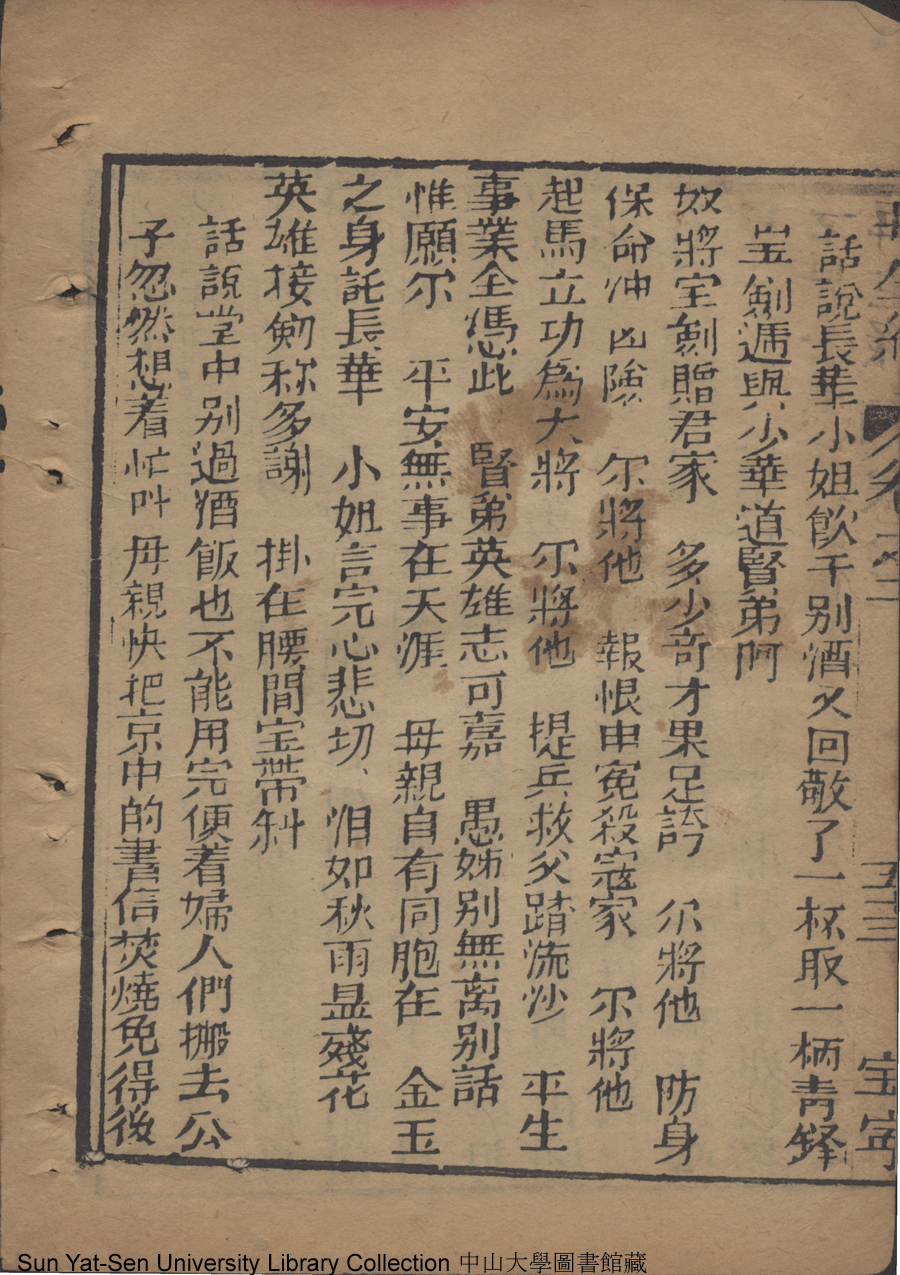 卷之二
五十三
話說長華小姐飲干别酒又回敬了一杯取一柄青鋒
宝劍遞與少華道賢弟阿
奴將宝劍贈君家 多少奇才果足誇 尔將他 防身
保命冲凶険 尔將他 報恨申冤殺寇家 尔將他
起馬立功為大將 尔將他 提兵救父踏流沙 平生
事業全凴此 賢弟英雄志可嘉 愚姊别無离别話
惟願尔 平安無事在天涯 母親自有同胞在 金玉
之身託長華 小姐言完心悲切、泪如秋雨显殘花
英雄接劍称多謝 掛在腰間宝帶斜
話說堂中别過酒飯也不能用完便着婦人們搬去公
子忽然想着忙呌母親快把京中的書信焚燒免得後
Sun Yat-Sen University Library Collection 中山大學圖書館藏